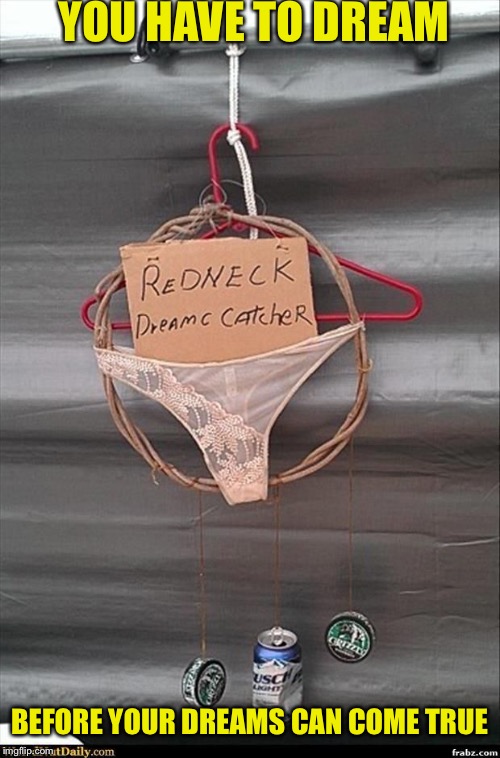 YOU HAVE TO DREAM
REDNECK
DREAMC CATCHER
GRIZZLY
BUSCH
LIGHT
BEFORE YOUR DREAMS CAN COME TRUE
imgflip.com
Daily.com
frabz.com